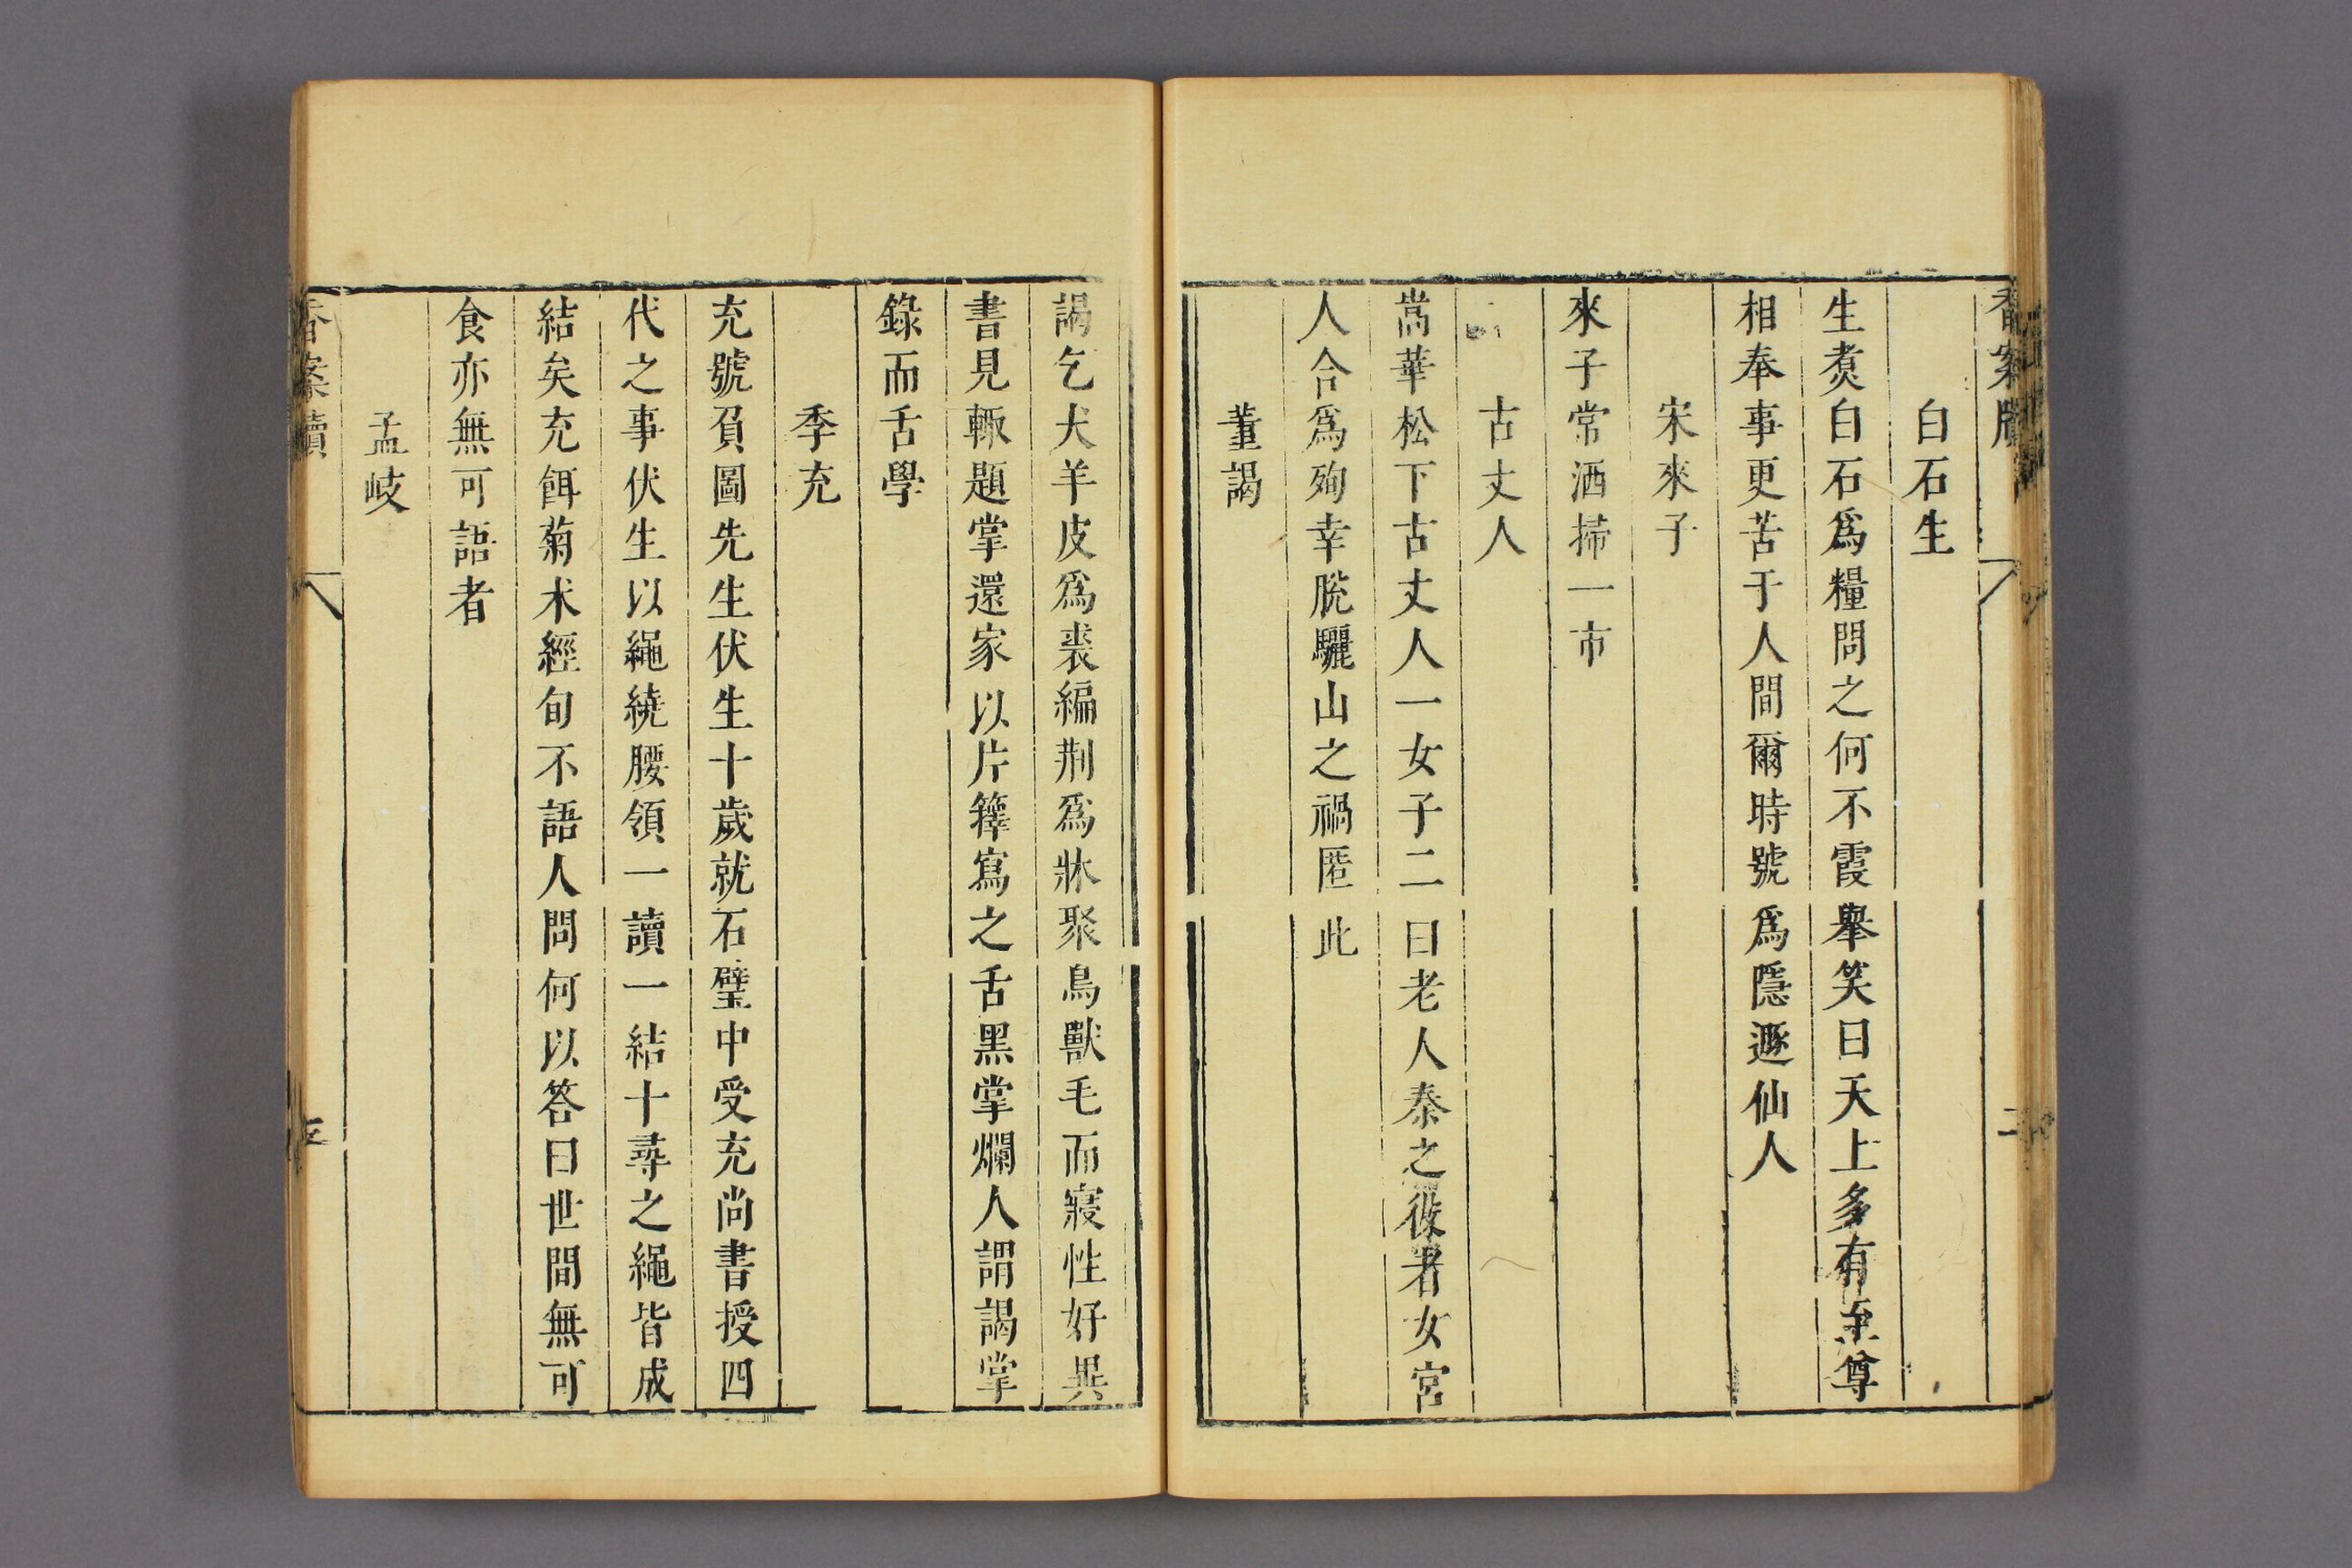 香案牘
白石生
生煑白石爲糧問之何不霞舉笑曰天上多有至尊
相奉事更苦于人間爾時號爲隱遯仙人
宋來子
來子常洒掃一市
古丈人
嵩華松下古丈人一女子二曰老人秦之役者女宮
人合爲殉幸脫驪山之禍匿此
董謁
謁乞犬羊皮爲裘編荆爲牀聚鳥獸毛而寢性好異
書見輙題掌還家以片籜寫之舌黑掌爛人謂謁掌
錄而舌學
季充
充號負圖先生伏生十歲就石壁中受充尚書授四
代之事伏生以繩繞腰領一讀一結十尋之繩皆成
結矣充餌菊术經旬不語人問何以答曰世間無可
食亦無可語者
孟岐
香案牘